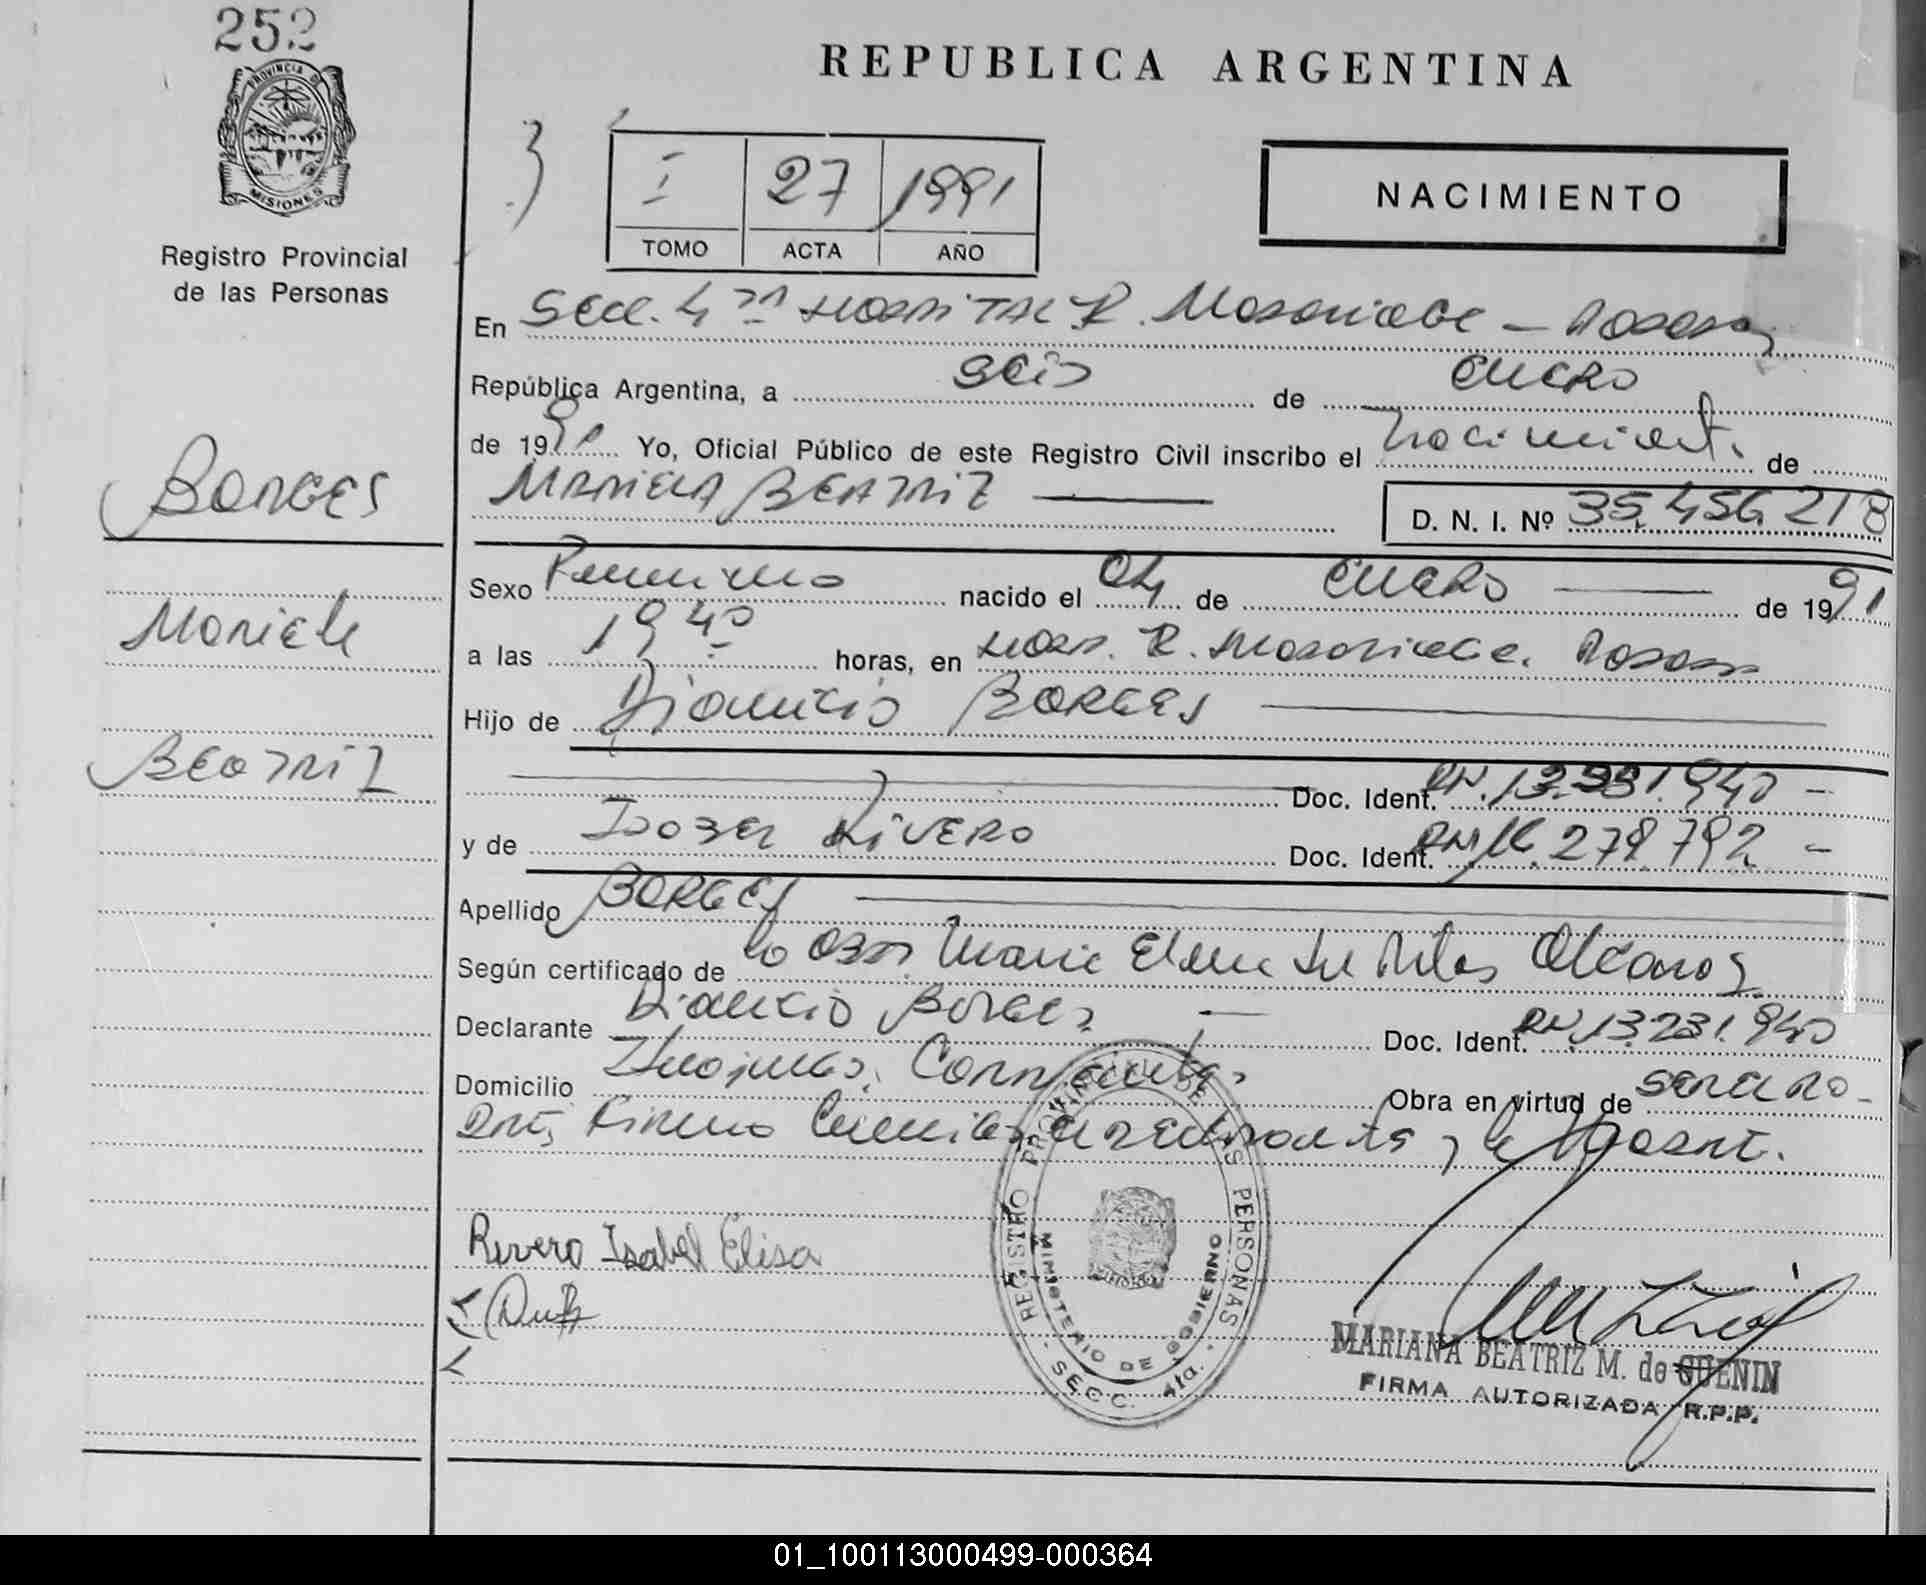 252
PROVINCIA DE
MISIONES
Registro Provincial
de las Personas
REPUBLICA ARGENTINA
I 27 1991
TOMO ACTA AÑO
NACIMIENTO
En Secc. 4ta Hospital R. Madariaga - Posadas
República Argentina, a seis de enero
de 1991 Yo, Oficial Público de este Registro Civil inscribo el nacimiento de
Mariela Beatriz D. N. I. Nº 35.456.218
Borges
Mariela
Beatriz
Sexo Femenino nacido el 04 de enero de 1991
a las 19 40 horas, en Hosp. R. Madariaga. Posadas
Hijo de Dionicio Borges
Doc. Ident. 940 -
y de Isabel Rivero Doc. Ident. 792 -
Apellido Borges
Según certificado de la Obst. Maria Elena del Alcaraz
Declarante Dionicio Borges Doc. Ident. DNI. 13.231.940
Domicilio Ituzaingo, Corrientes Obra en virtud de ser el pro-
Firman la y la
Rivero Isabel Elisa
REGISTRO PROVINCIAL DE LAS PERSONAS
MINISTERIO DE GOBIERNO
MISIONES
- SECC. 4ta. -
MARIANA BEATRIZ M. de GUENIN
FIRMA AUTORIZADA R.P.P.
01_100113000499-000364